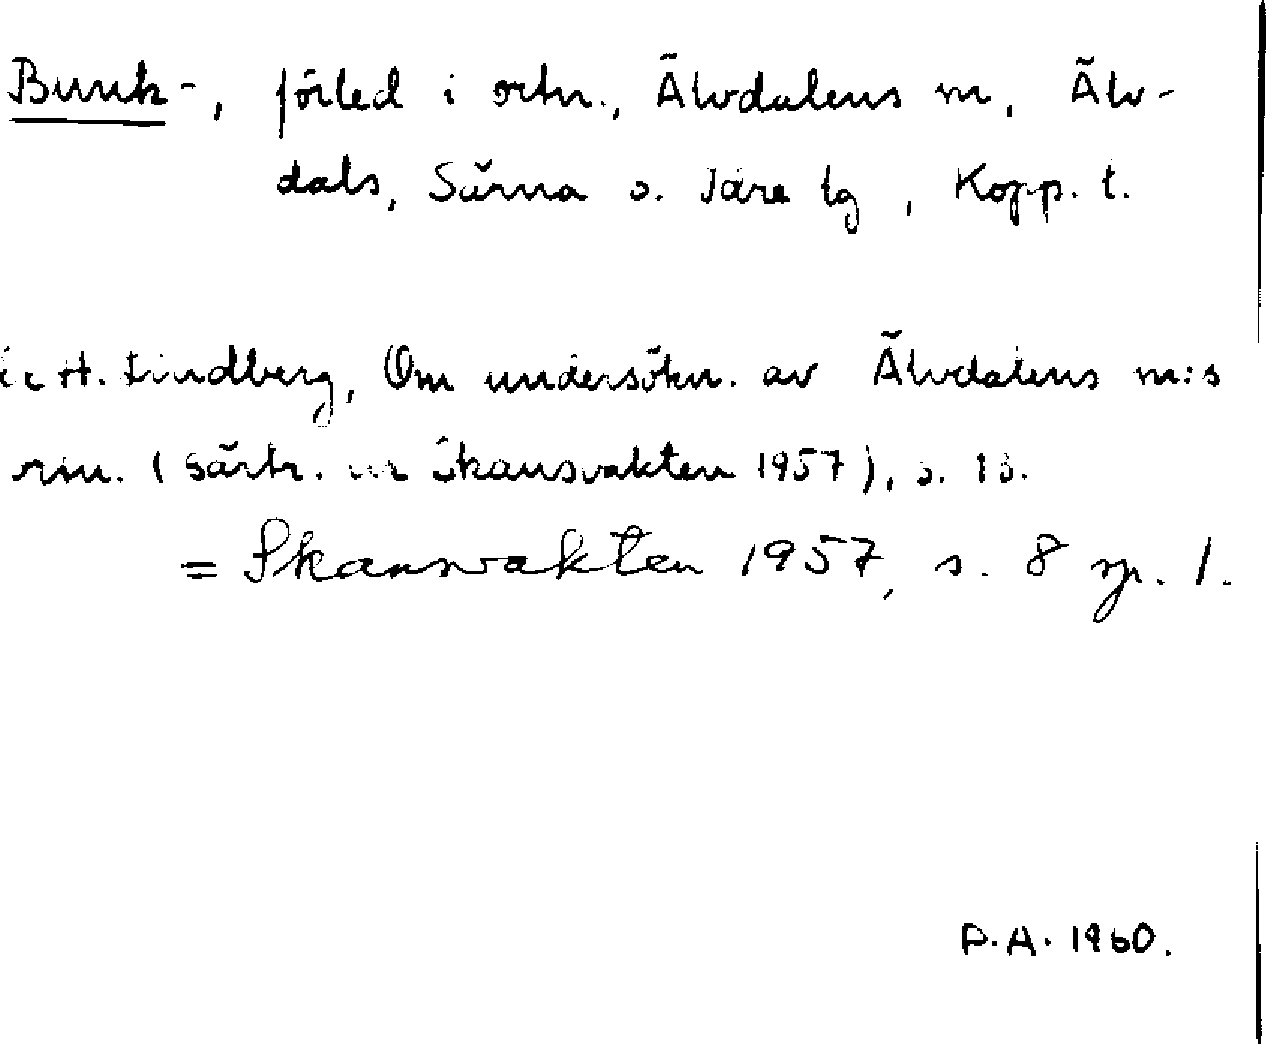 Bunk-, förled i ortn., Älvdalens m, Älv-
dals, Särna o. Idre tg, Kopp. l.
H. Lindberg, Om undersökn. av Älvdalens m:s
(särtr. ur Skansvakten 1957), s. 13.
= Skansvakten 1957, s. 8 sp. 1.
P.A. 1960.